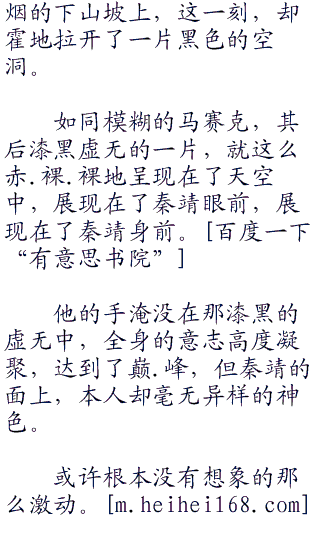 烟的下山坡上，这一刻，却
霍地拉开了一片黑色的空
洞。
如同模糊的马赛克，其
后漆黑虚无的一片，就这么
赤.裸.裸地呈现在了天空
中，展现在了秦靖眼前，展
现在了秦靖身前。[百度一下
“有意思书院”]
他的手淹没在那漆黑的
虚无中，全身的意志高度凝
聚，达到了巅.峰，但秦靖的
面上，本人却毫无异样的神
色。
或许根本没有想象的那
么激动。[m.heihei168.com]